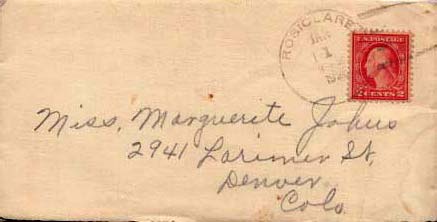 ROSICLARE
JAN
1
U.S. POSTAGE
2 CENTS 2
Miss. Marguerite Johns
2941 Larimer St,
Denver
Colo.